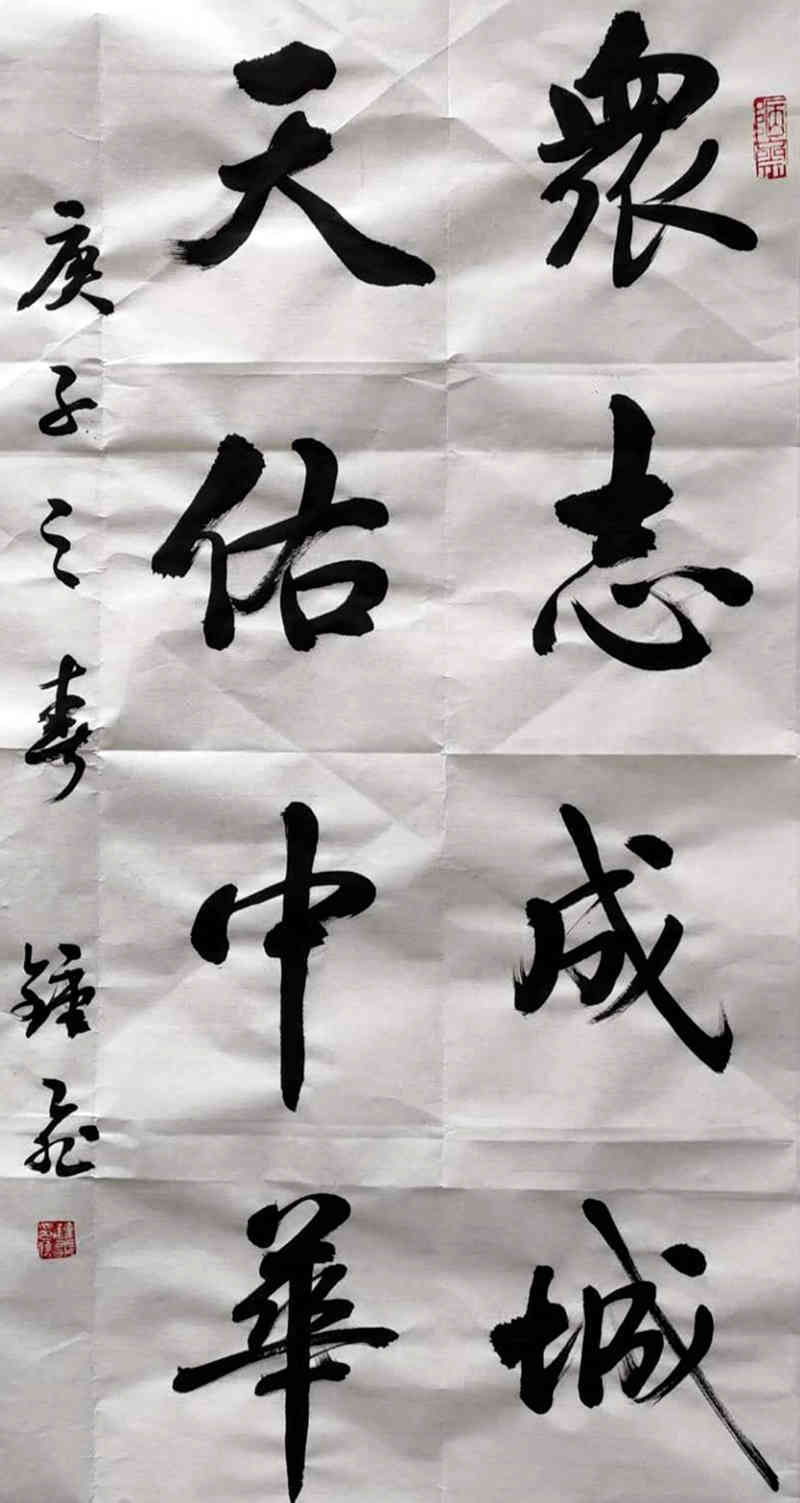 眾志成城
天佑中華
庚子之春 鍾飛